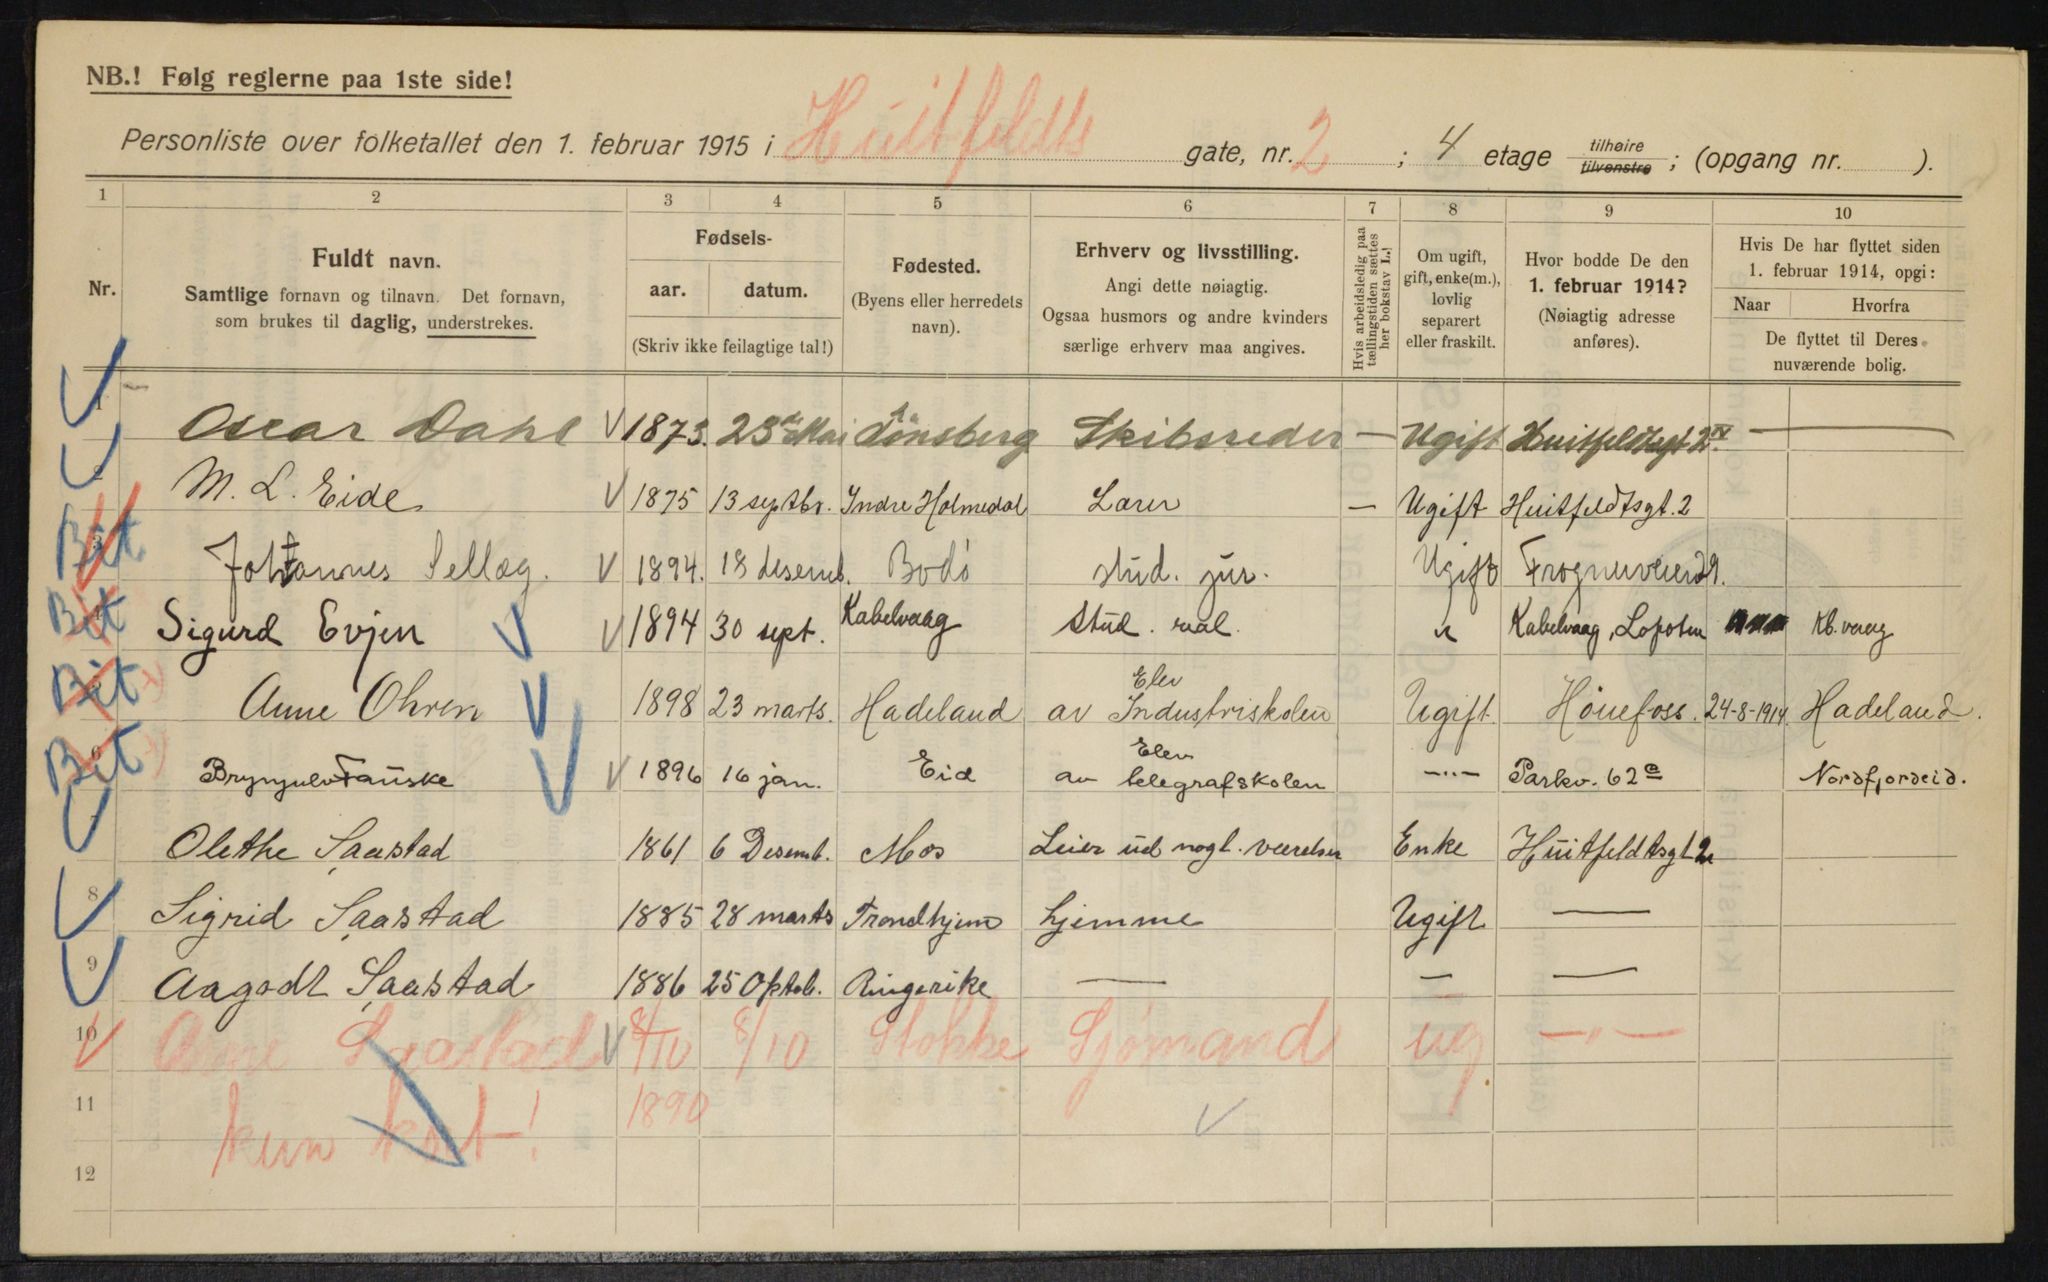 NB.! Følg reglerne paa 1ste side!
Personliste over folketallet den 1. februar 1915 i Huitfeldts gate, nr. 2 ; 4 etage tilhøire tilvenstre ; (opgang nr. ).
1 2 3 4 5 6 7 8 9 10
Nr.
Fuldt navn.
Samtlige fornavn og tilnavn. Det fornavn,
som brukes til daglig, understrekes.
Fødsels-
aar. datum.
(Skriv ikke feilagtige tal!)
Fødested.
(Byens eller herredets
navn).
Erhverv og livsstilling.
Angi dette nøiagtig.
Ogsaa husmors og andre kvinders
særlige erhverv maa angives.
Hvis arbeidsledig paa
tællingstiden sættes
her bokstav L.!
Om ugift,
gift, enke(m.),
lovlig
separert
eller fraskilt.
Hvor bodde De den
1. februar 1914?
(Nøiagtig adresse
anføres).
Hvis De har flyttet siden
1. februar 1914, opgi:
Naar Hvorfra
De flyttet til Deres
nuværende bolig.
1 Oscar Dahl 1873. 23de Mai Tönsberg Skibsreder — Ugift Huitfeldtsgt 2 IV —
2 M. L. Eide 1875 13 septbr. Indre Holmedal Lærer — Ugift Huitfeldtsgt. 2
Bit 3 Johannes Sellæg. 1894. 18 desemb. Bodö stud. jur. Ugift Frognerveien 9.
Bit 4 Sigurd Evjen 1894 30 sept. Kabelvaag Stud. real. " Kabelvaag, Lofoten Kb. vaag
Bit 5 Anne Ohren 1898 23 marts. Hadeland Elev av Industriskolen Ugift Hönefoss. 24-8-1914 Hadeland.
Bit 6 Brynjulv Fauske 1896 16 jan. Eid Elev av telegrafskolen —"— Parkv. 62a Nordfjordeid.
7 Olethe Saastad 1861 6 Desemb. Mos Leier ud nogl. værelser Enke Huitfeldtsgt 2
8 Sigrid Saastad 1885 28 marts Trondhjem hjemme Ugift —
9 Aagodt Saastad 1886 25 Oktob. Ringerike — — —
10 Arne Saastad 8/10 8/10 Stokke Sjömand ug —"—
11 1890
kun kort!
12